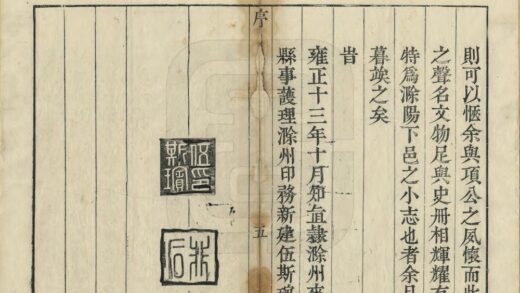 則可以愜余與項公之夙懷而此
之聲名文物足與史冊相輝耀有
特爲滁陽下邑之小志也者余
暮竢之矣
旹
雍正十三年十月知直隷滁州來
縣事護理滁州印務新建伍斯璸
序
五
伍印斯璸